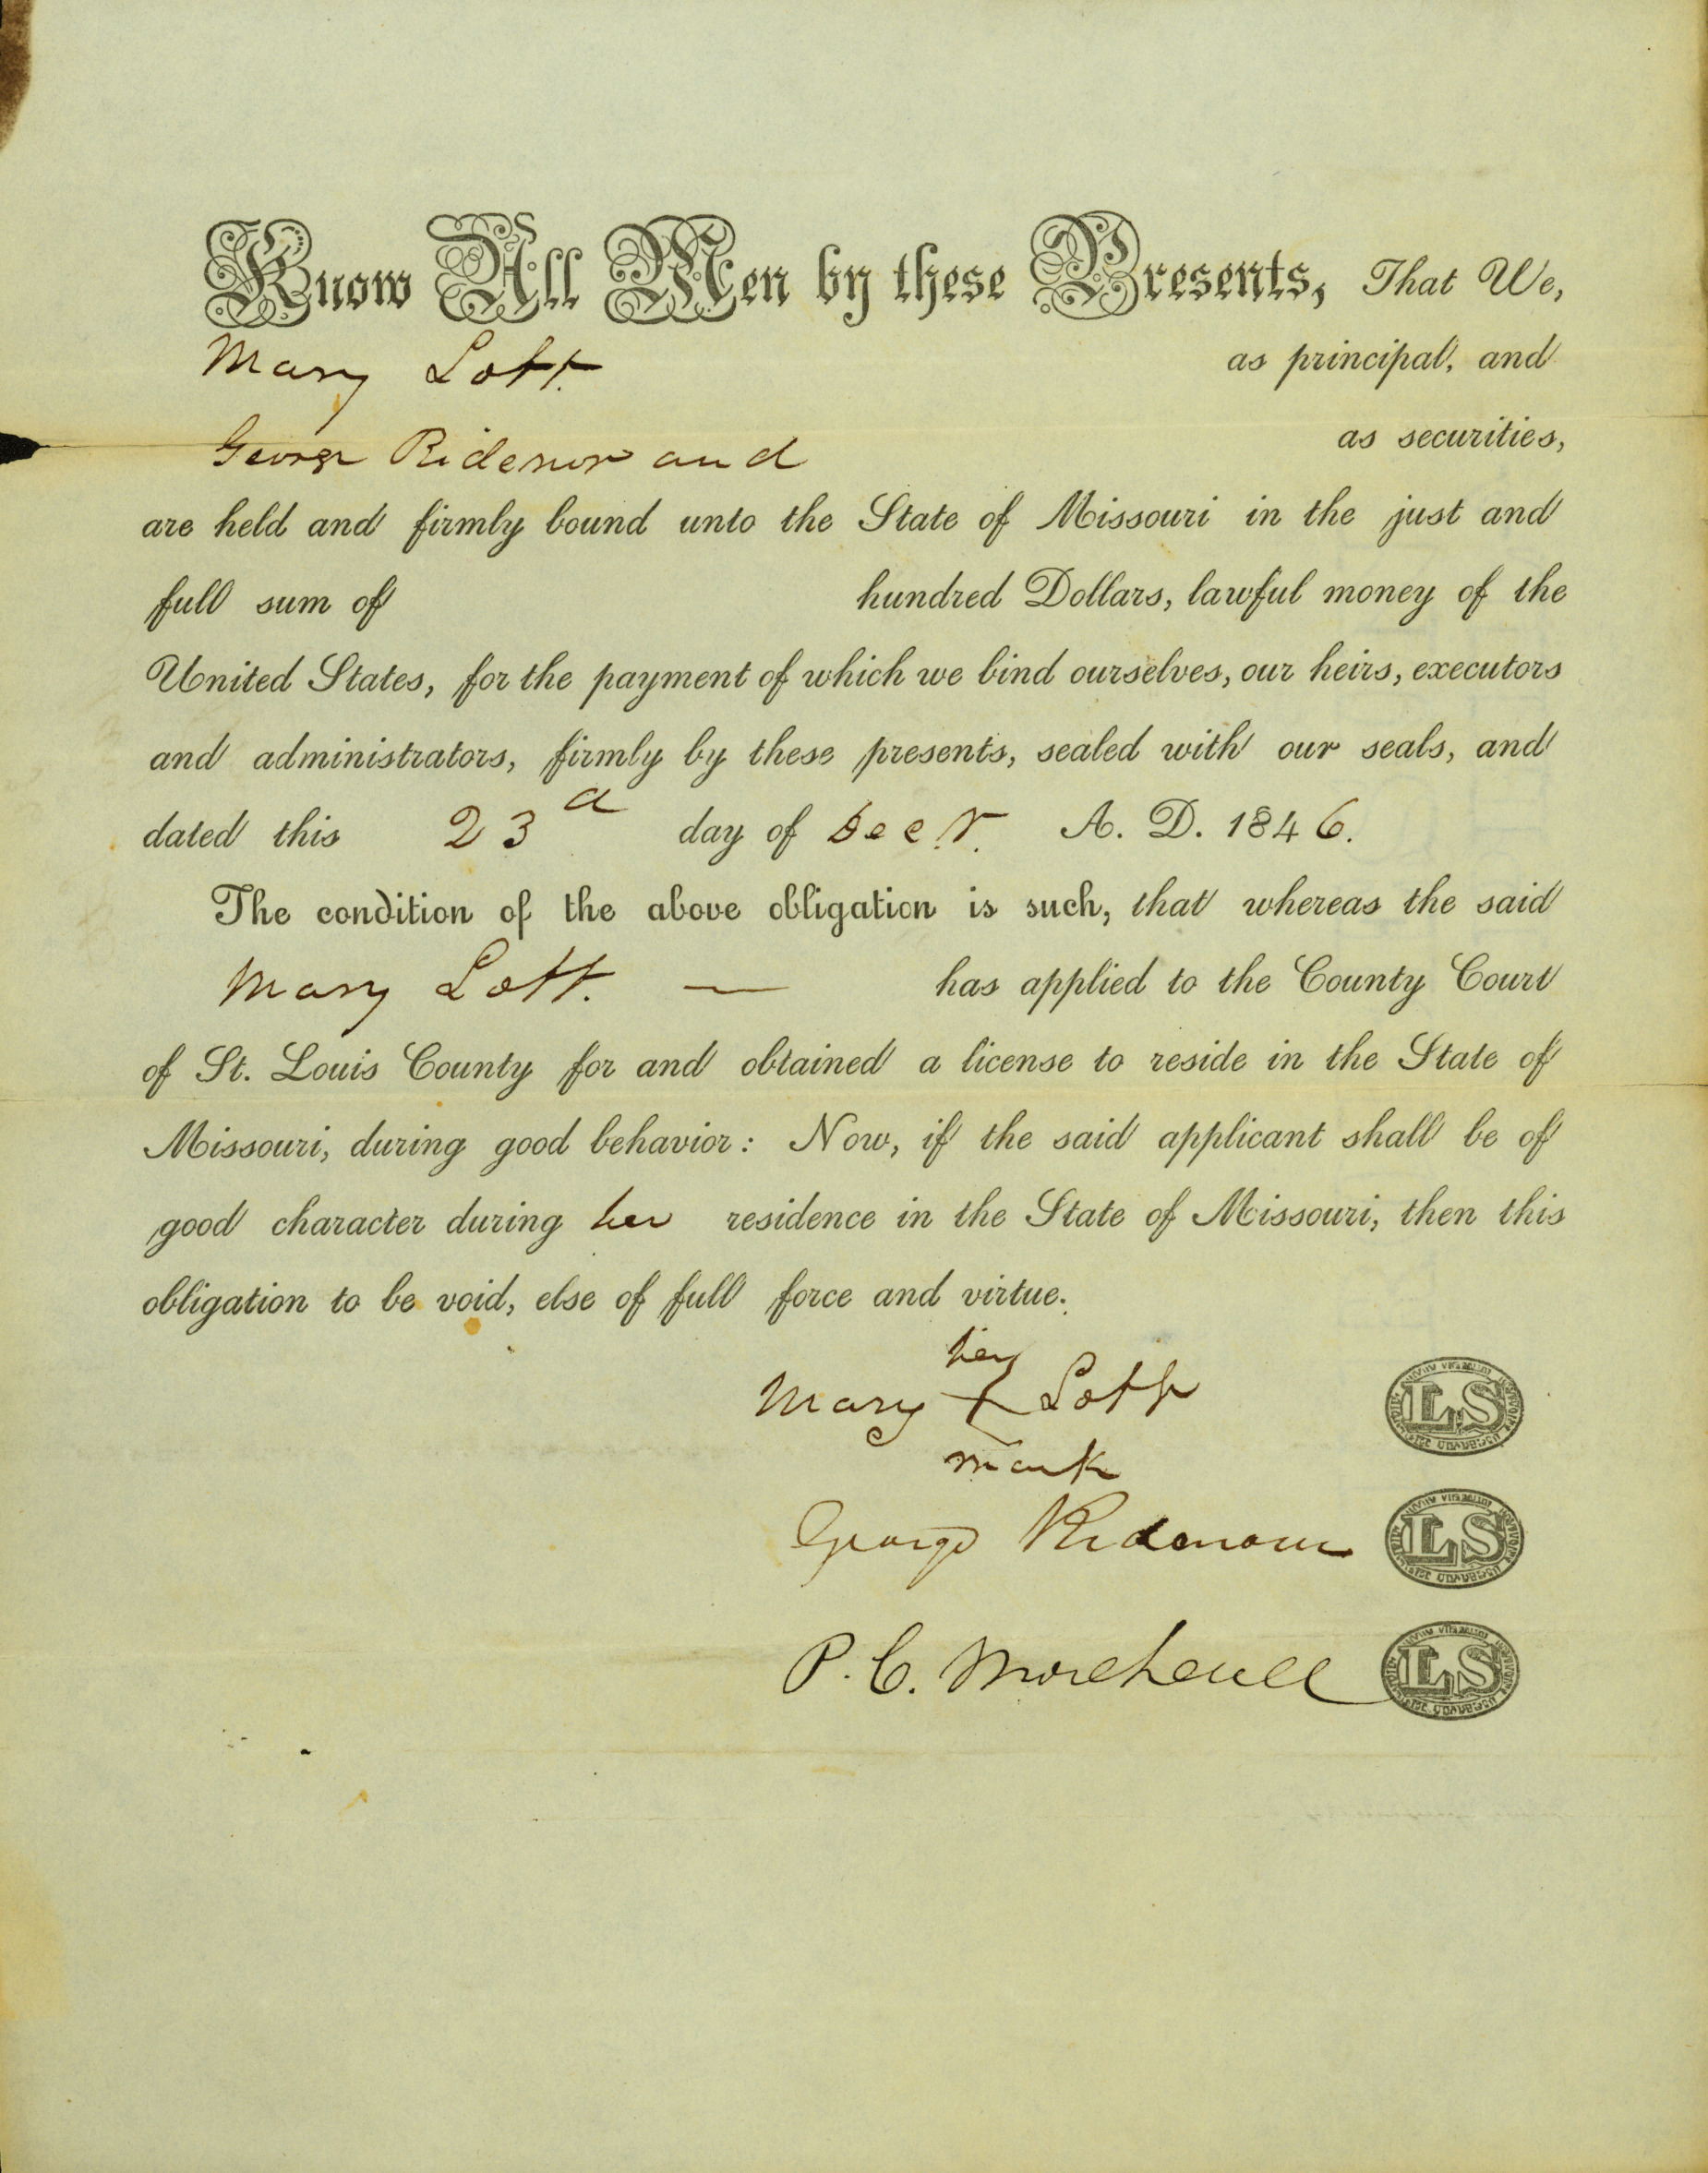 Know All Men by these Presents, That We,
Mary Lott. as principal, and
George Ridenor and as securities,
are held and firmly bound unto the State of Missouri in the just and
full sum of hundred Dollars, lawful money of the
United States, for the payment of which we bind ourselves, our heirs, executors
and administrators, firmly by these presents, sealed with our seals, and
dated this 23d day of Decr. A. D. 1846.
The condition of the above obligation is such, that whereas the said
Mary Lott. — has applied to the County Court
of St. Louis County for and obtained a license to reside in the State of
Missouri, during good behavior: Now, if the said applicant shall be of
good character during her residence in the State of Missouri, then this
obligation to be void, else of full force and virtue.
her
Mary X Lott LS
mark
George Ridenour LS
P. C. Morehead LS